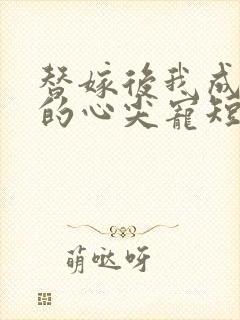 替嫁後我成
的心尖寵短
萌哒呀